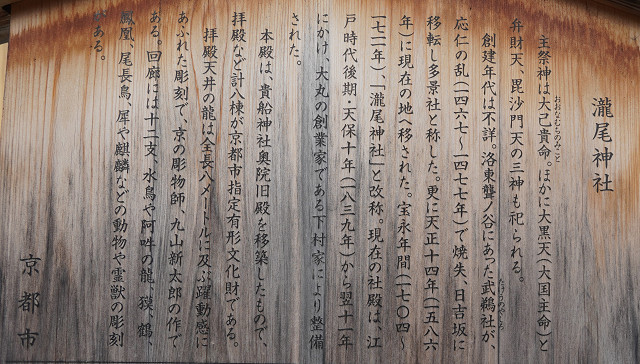 瀧尾神社
主祭神は大己貴命。ほかに大黒天(大国主命)と
おおなむちのみこと
弁財天、毘沙門天の三神も祀られる。
創建年代は不詳。洛東聾ノ谷にあった武鵜社が、
応仁の乱(一四六七〜一四七七年)で焼失、日吉坂に
移転し多景社と称した。更に天正十四年(一五八六
年)に現在の地へ移された。宝永年間(一七〇四〜
一七一一年)、「瀧尾神社」と改称。現在の社殿は、江
戸時代後期・天保十年(一八三九年)から翌十一年
にかけ、大丸の創業家である下村家により整備
された。
本殿は、貴船神社奥院旧殿を移築したもので、
拝殿など計八棟が京都市指定有形文化財である。
拝殿天井の龍は全長八メートルに及ぶ躍動感に
あふれた彫刻で、京の彫物師、九山新太郎の作で
ある。回廊には十二支、水鳥や阿吽の龍、獏、鶴、
鳳凰、尾長鳥、犀や麒麟などの動物や霊獣の彫刻
がある。
京都市